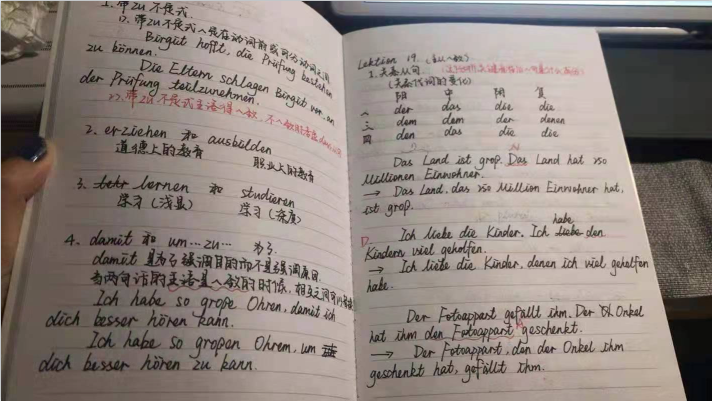 1. 带zu不定式
Birgit hofft, die Prüfung bestehen
zu können.
Die Eltern schlagen Birgit vor, an
der Prüfung teilzunehmen.
2. erziehen 和 ausbilden
道德上的教育 职业上的教育
3. lernen 和 studieren
学习(浅显) 学习(深度)
4. damit 和 um...zu... 为了
damit 是为了强调目的而不是强调原因
当两句话的主语是一致的时候,相互之间可以
Ich habe so große Ohren, damit ich
dich besser hören kann.
Ich habe so großen Ohren, um
dich besser hören zu kann.
Lektion 19.
1. 关系从句.
(关系代词的变化)
阳 中 阴 复
一 der das die die
三 dem dem der denen
四 den das die die
N
Das Land ist groß. Das Land hat 150
Millionen Einwohner.
→ Das Land, das 150 Million Einwohner hat,
ist groß.
D. habe
Ich liebe die Kinder. Ich liebe den
Kindern viel geholfen.
→ Ich liebe die Kinder, denen ich viel geholfen
habe.
Der Fotoappart gefällt ihm. Der Onkel
hat ihm den Fotoappart geschenkt.
→ Der Fotoappart, den der Onkel ihm
geschenkt hat, gefällt ihm.